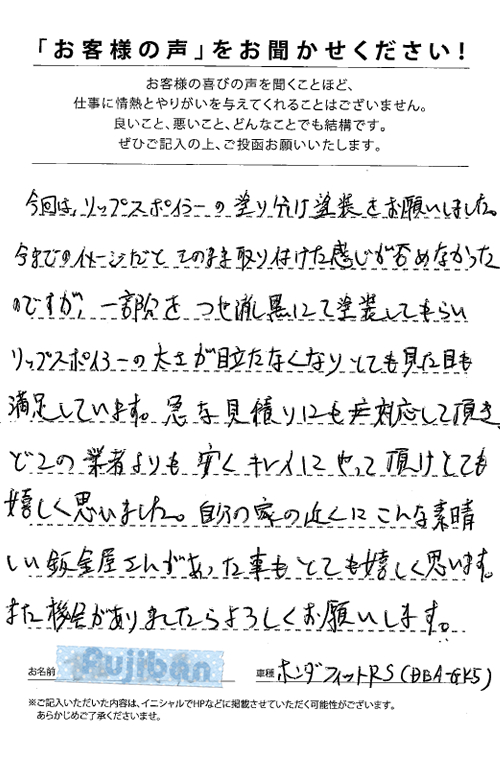 「お客様の声」をお聞かせください！
お客様の喜びの声を聞くことほど、
仕事に情熱とやりがいを与えてくれることはございません。
良いこと、悪いこと、どんなことでも結構です。
ぜひご記入の上、ご投函お願いいたします。
今回は、リップスポイラーの塗り分け塗装をお願いしました。
今までのイメージだと そのまま取り付けた感じが否めなかった
のですが、一部分を つや消し黒にて塗装してもらい
リップスポイラーの太さが目立たなくなり とても見た目も
満足しています。急な見積りにも 対応して頂き
どこの業者よりも 安く キレイに やって頂けとても
嬉しく思いました。自分の家の近くに こんな素晴
しい 鈑金屋さんがあった事も とても嬉しく思います。
また機会がありましたらよろしくお願いします。
お名前 Fujiban 車種 ホンダフィットRS(DBA-GK5)
※ご記入いただいた内容は、イニシャルでHPなどに掲載させていただく可能性がございます。
あらかじめご了承くださいませ。